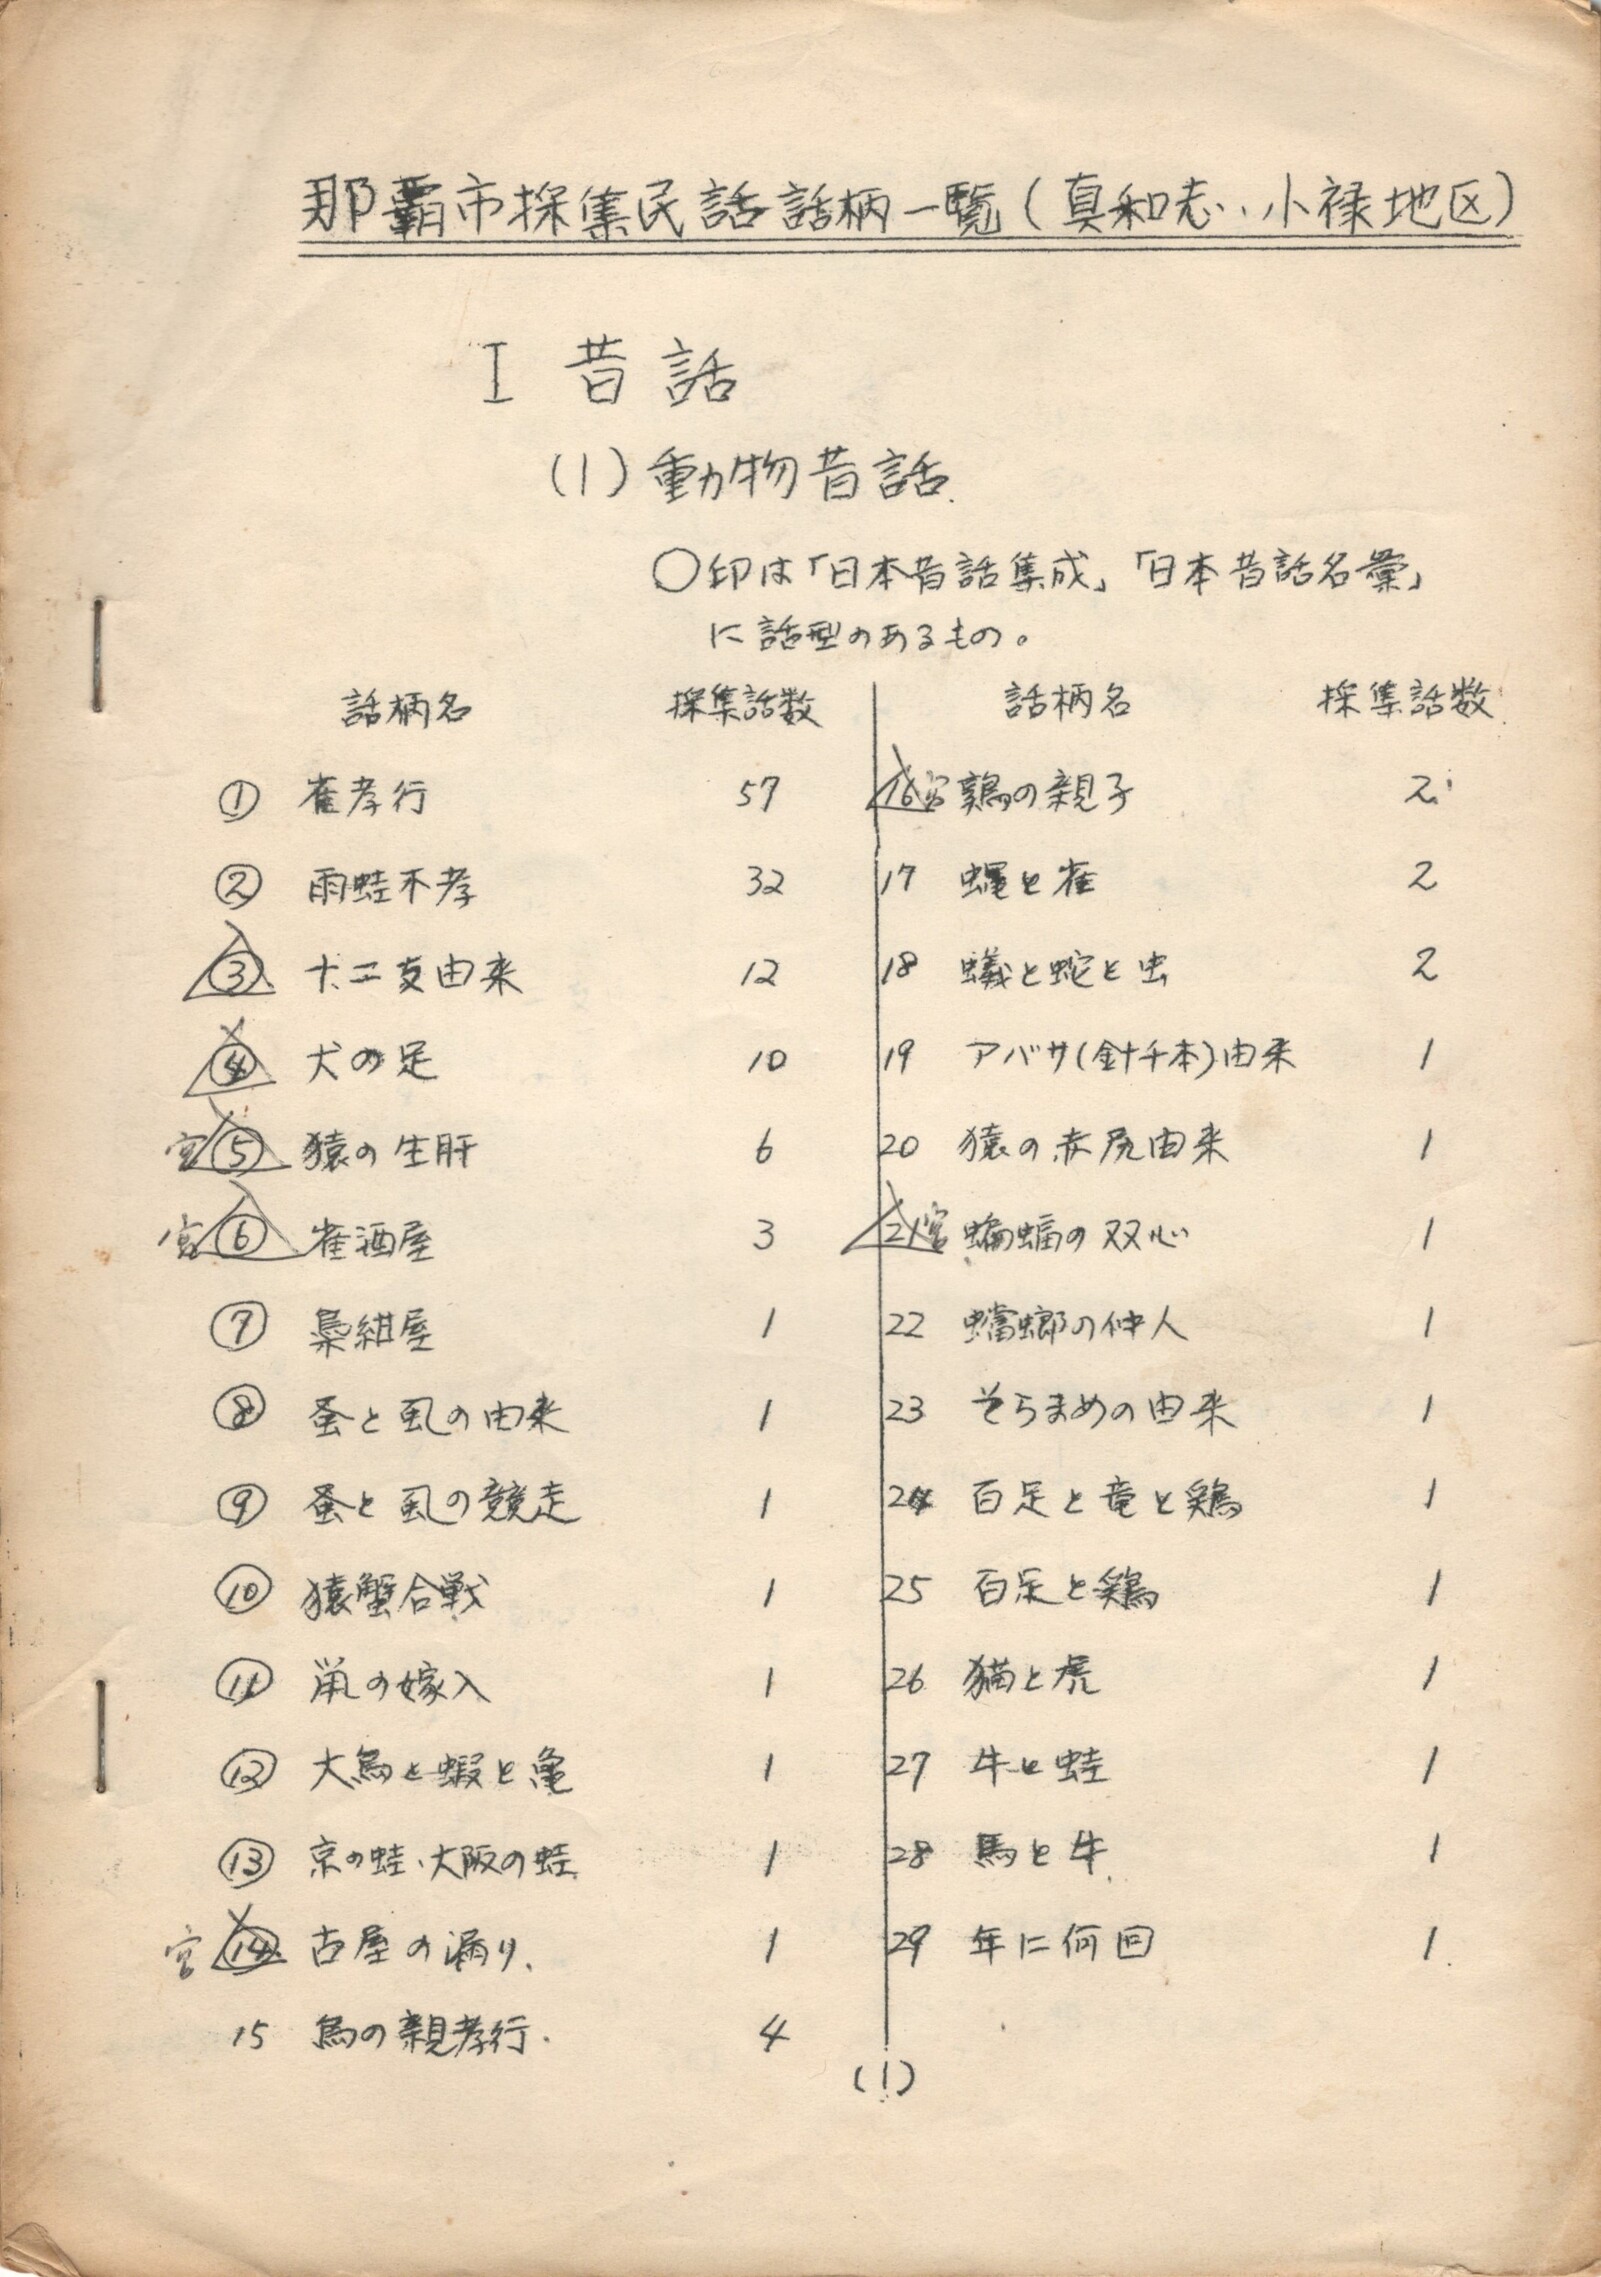 那覇市採集民話話柄一覧(真和志・小禄地区)
I 昔話
(1)動物昔話
○印は「日本昔話集成」「日本昔話名彙」
に話型のあるもの。
話柄名 採集話数
① 雀孝行 57
② 雨蛙不孝 32
③ 十二支由来 12
④ 犬の足 10
宮 ⑤ 猿の生肝 6
宮 ⑥ 雀酒屋 3
⑦ 梟紺屋 1
⑧ 蚤と虱の由来 1
⑨ 蚤と虱の競走 1
⑩ 猿蟹合戦 1
⑪ 鼠の嫁入 1
⑫ 大鳥と蝦と亀 1
⑬ 京の蛙・大阪の蛙 1
宮 ⑭ 古屋の漏り 1
15 烏の親孝行 4
話柄名 採集話数
16 宮 鶏の親子 2
17 蠅と雀 2
18 蟻と蛇と虫 2
19 アバサ(針千本)由来 1
20 猿の赤尻由来 1
21 宮 蝙蝠の双心 1
22 蟷螂の仲人 1
23 そらまめの由来 1
24 百足と竜と鶏 1
25 百足と鶏 1
26 猫と虎 1
27 牛と蛙 1
28 馬と牛 1
29 年に何回 1
(1)